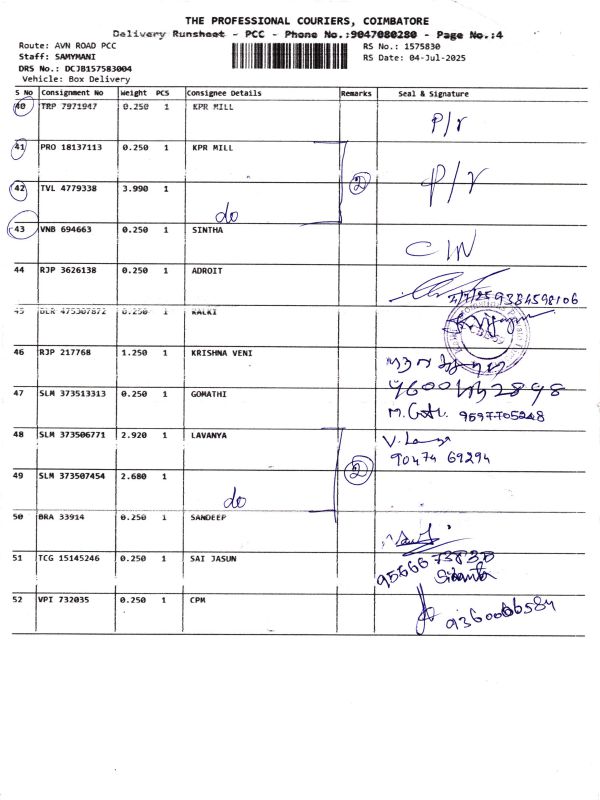 THE PROFESSIONAL COURIERS, COIMBATORE
Delivery Runsheet - PCC - Phone No.:9047080280 - Page No.:4
Route: AVN ROAD PCC RS No.: 1575830
Staff: SAMYMANI RS Date: 04-Jul-2025
DRS No.: DCJB157583004
Vehicle: Box Delivery
S No Consignment No Weight PCS Consignee Details Remarks Seal & Signature
40 TRP 7971947 0.250 1 KPR MILL P/r
41 PRO 18137113 0.250 1 KPR MILL
42 TVL 4779338 3.990 1 do 2 P/r
43 VNB 694663 0.250 1 SINTHA CIN
44 RJP 3626138 0.250 1 ADROIT
45 BLR 475307872 0.250 1 KALKI
46 RJP 217768 1.250 1 KRISHNA VENI
47 SLM 373513313 0.250 1 GOMATHI 9597705248
48 SLM 373506771 2.920 1 LAVANYA
90474 69294
49 SLM 373507454 2.680 1 do 2
50 BRA 33914 0.250 1 SANDEEP
51 TCG 15145246 0.250 1 SAI JASUN
52 VPI 732035 0.250 1 CPM